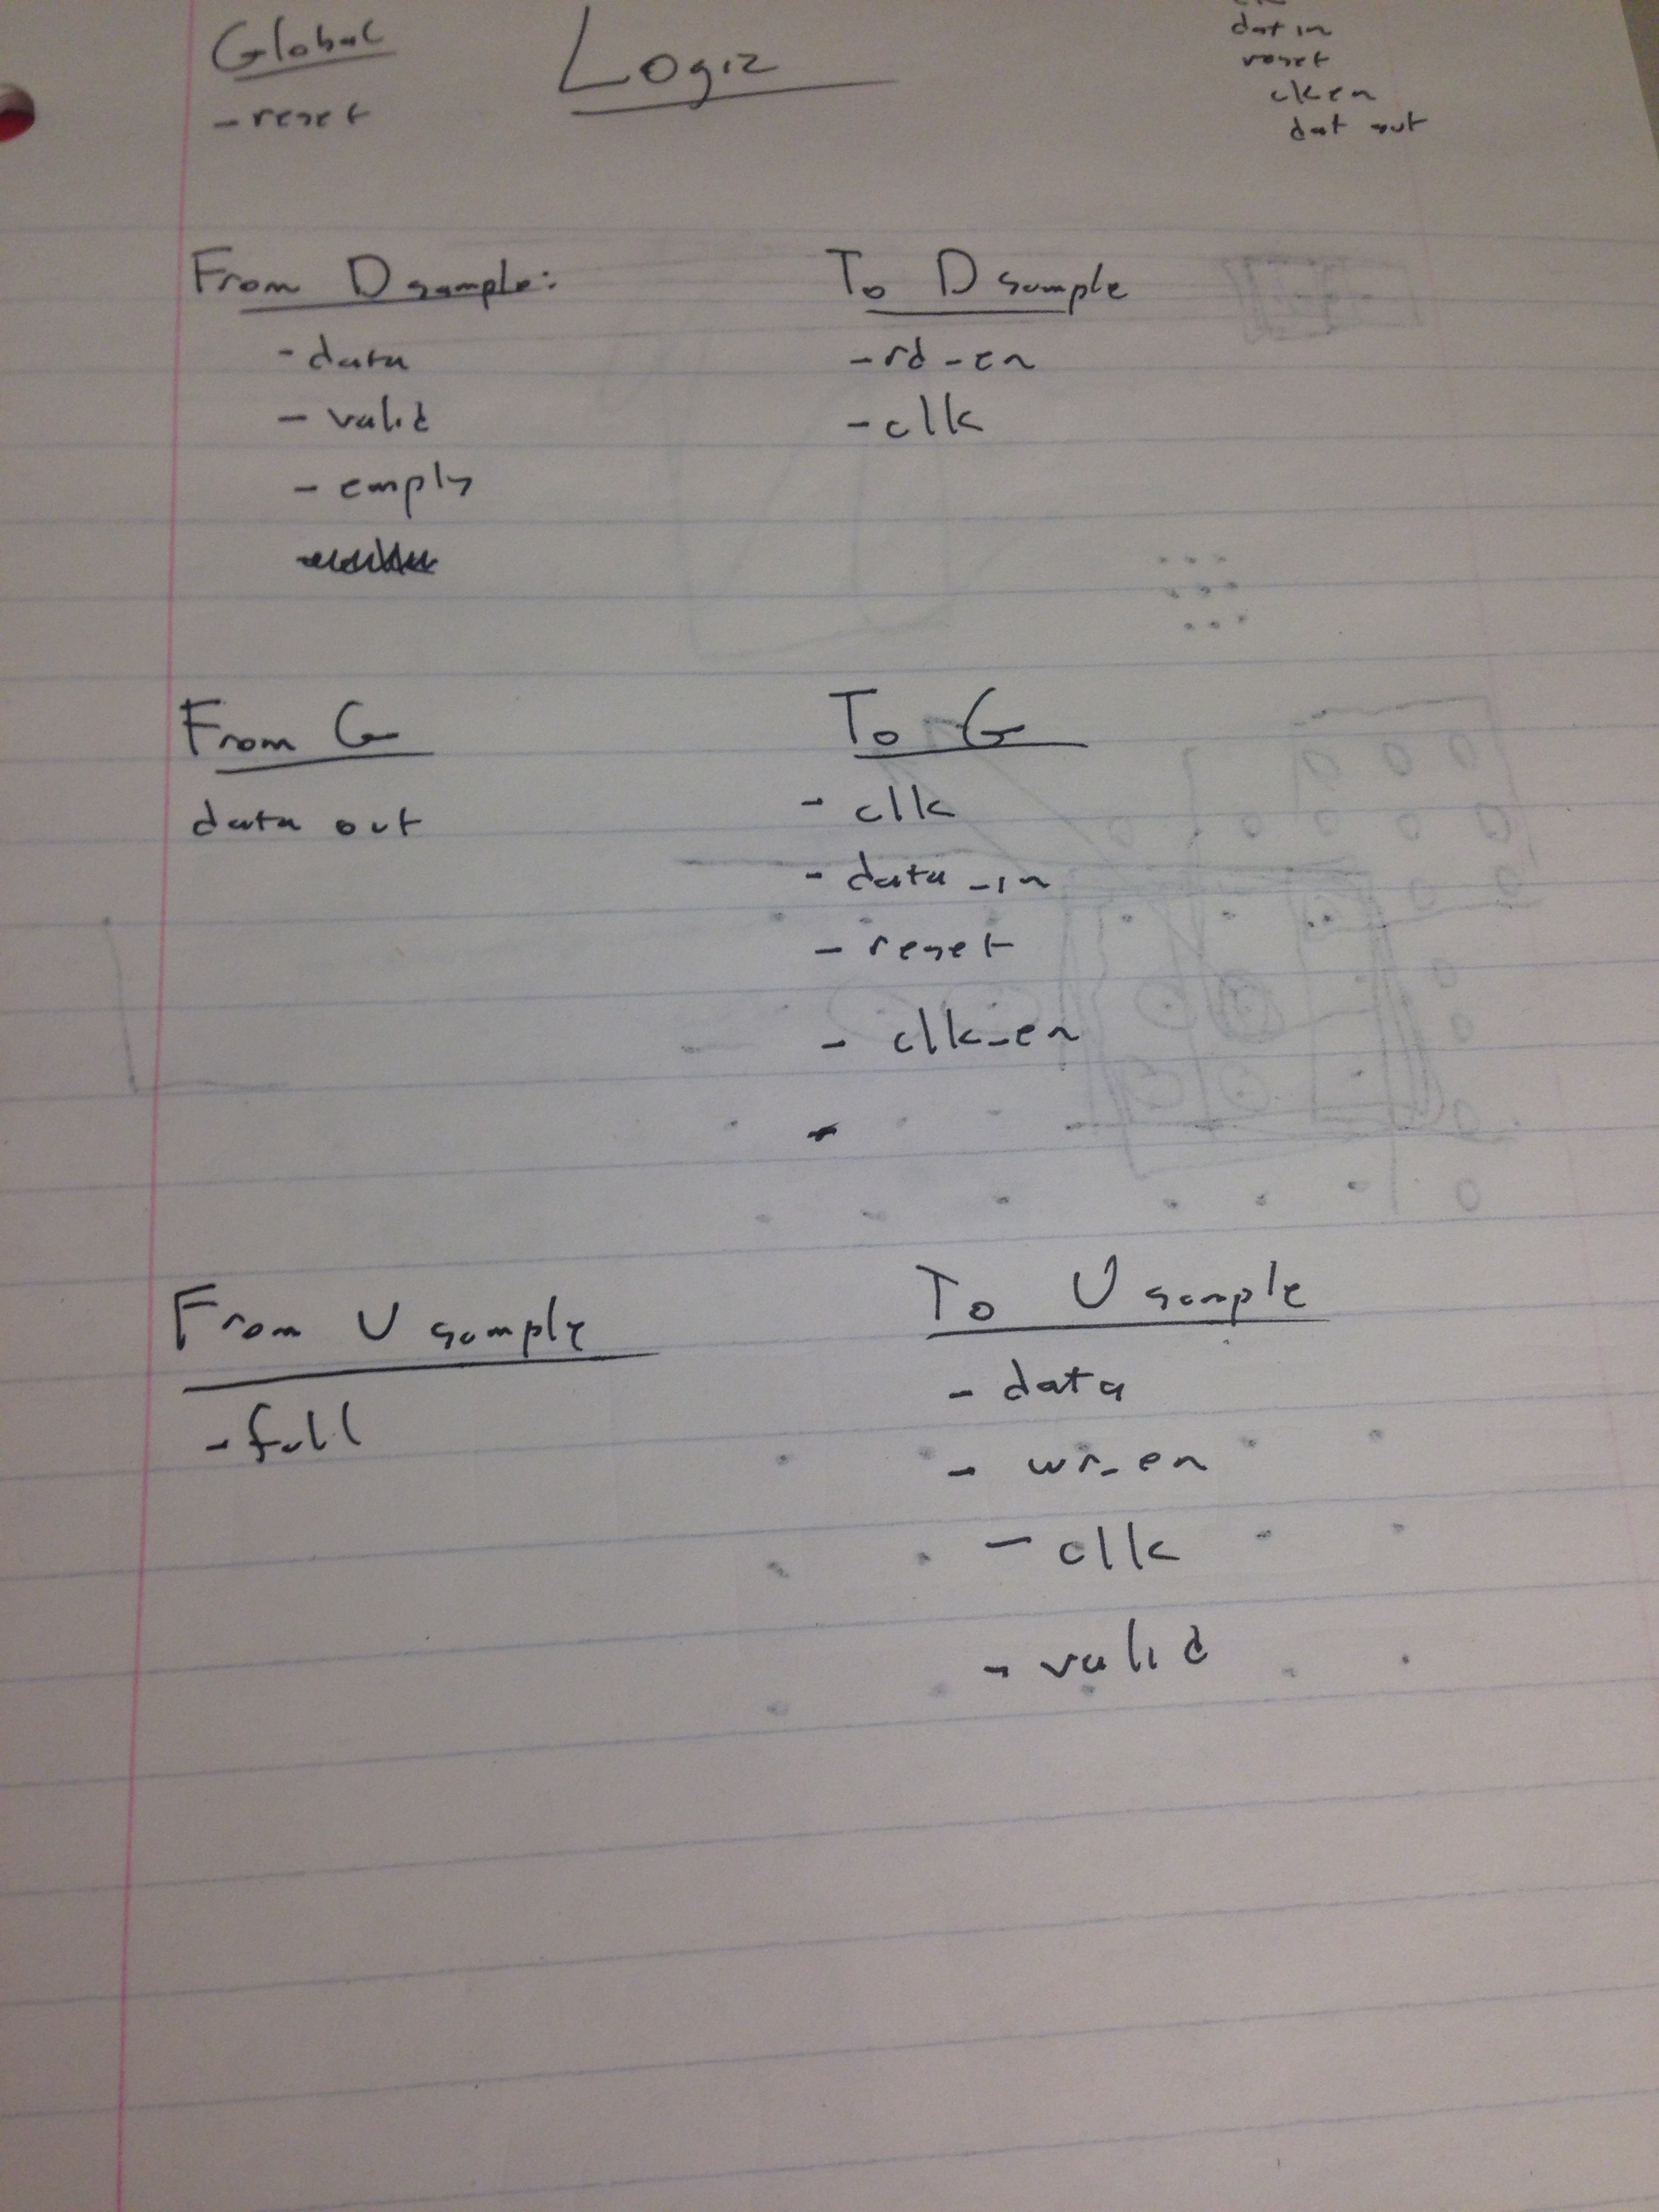 Global
- reset
Logic
dat in
reset
clk en
dat out
From D sample:
- data
- valid
- empty
To D sample
- rd_en
- clk
From G
data out
To G
- clk
- data_in
- reset
- clk_en
From U sample
- full
To U sample
- data
- wr_en
- clk
- valid